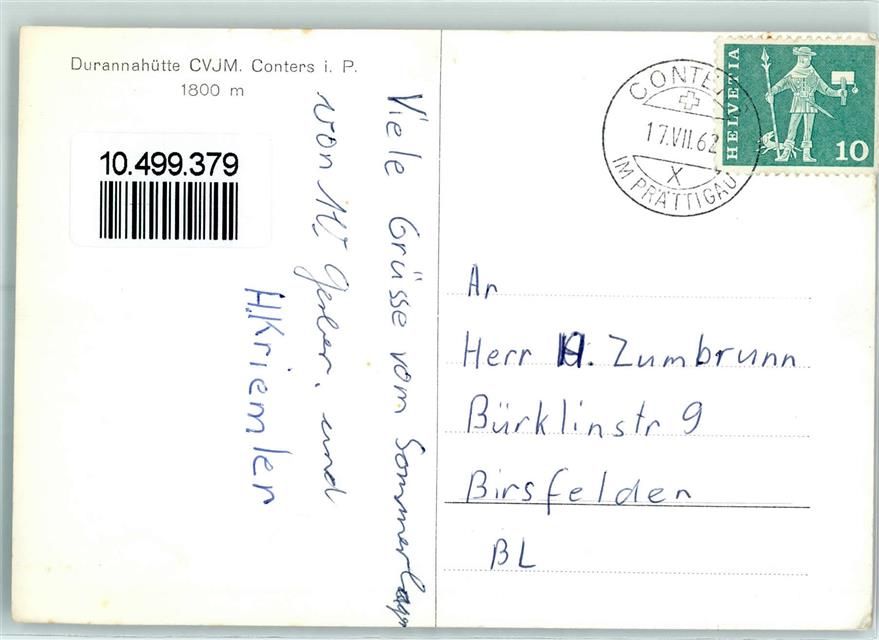 Durannahütte CVJM. Conters i. P.
1800 m
10.499.379
Viele Grüsse vom Sommerlager
von W. Gerber. und
H.Kriemler
CONTERS
17.VII.62
X
IM PRÄTTIGAU
HELVETIA
10
An
Herr H. Zumbrunn
Bürklinstr 9
Birsfelden
BL